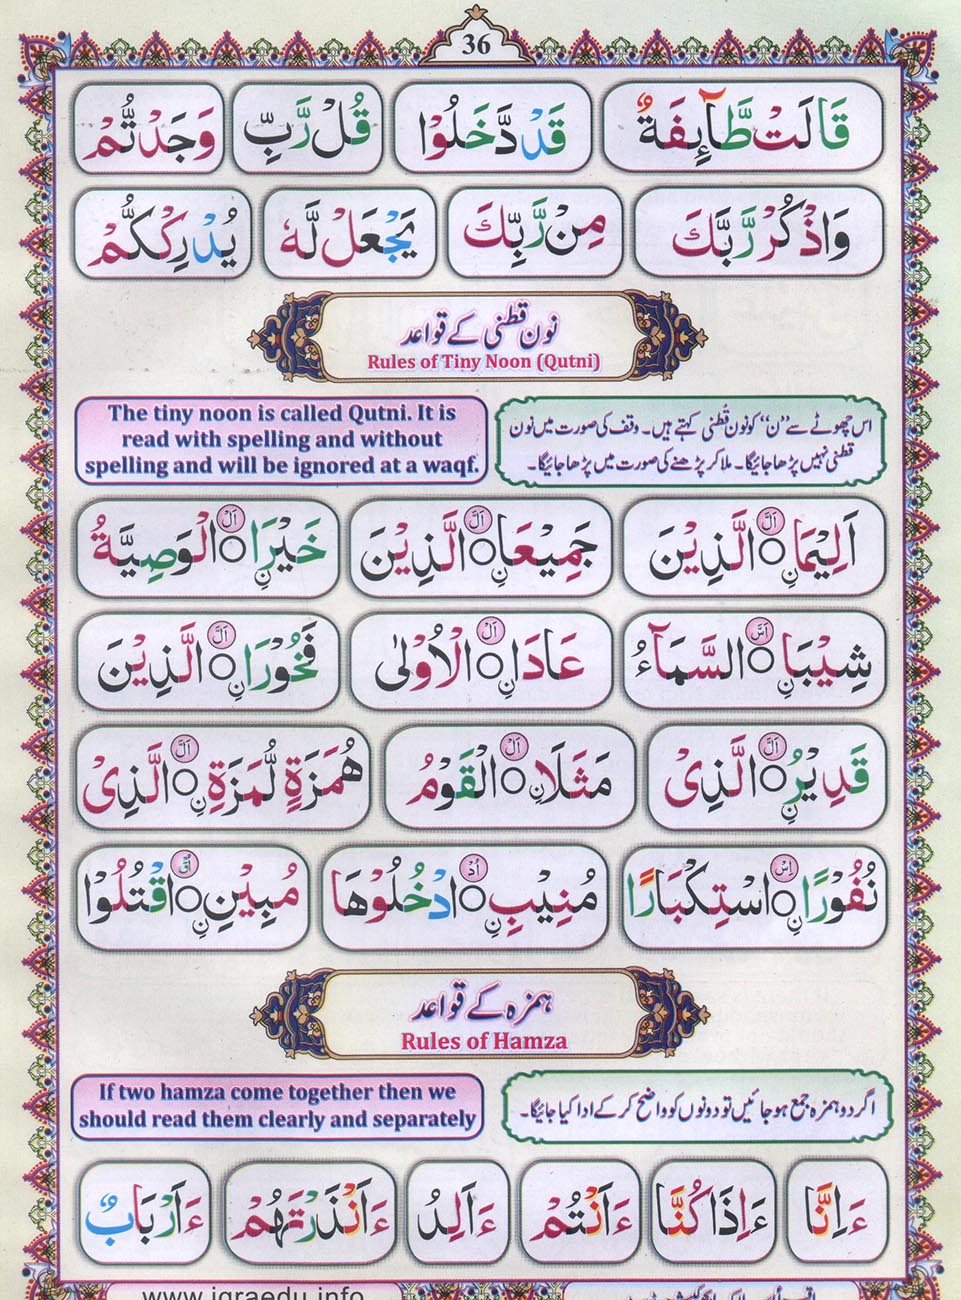 36
قَالَتْ طَّآئِفَةٌ قَدْ دَّخَلُوْا قُلْ رَّبِّ وَجَدْتُّمْ
وَاذْكُرْ رَّبَّكَ مِنْ رَّبِّكَ يَجْعَلْ لَّهٗ يُدْرِكْكُّمْ
نون قطنی کے قواعد
Rules of Tiny Noon (Qutni)
The tiny noon is called Qutni. It is
read with spelling and without
spelling and will be ignored at a waqf.
اس چھوٹے سے ”ن“ کو نون قُطنی کہتے ہیں۔ وقف کی صورت میں نون
قطنی نہیں پڑھا جائیگا۔ ملا کر پڑھنے کی صورت میں پڑھا جائیگا۔
اَلِيْمَاۨ ○ الَّذِيْنَ جَمِيْعَاۨ ○ الَّذِيْنَ خَيْرَاۨ ○ الْوَصِيَّةُ
شِيْبَاۨ ○ السَّمَآءُ عَادَاۨ ○ الْاُوْلٰى فَخُوْرَاۨ ○ الَّذِيْنَ
قَدِيْرُۨ ○ الَّذِىْ مَثَلَاۨ ○ الْقَوْمُ هُمَزَةٍ لُّمَزَةِۨ ○ الَّذِىْ
نُفُوْرًاۨ ○ اسْتِكْبَارًا مُنِيْبِۨ ○ ادْخُلُوْهَا مُبِيْنِۨ ○ اقْتُلُوْا
ہمزہ کے قواعد
Rules of Hamza
If two hamza come together then we
should read them clearly and separately
اگر دو ہمزہ جمع ہو جائیں تو دونوں کو واضح کر کے ادا کیا جائیگا۔
ءَاِنَّا ءَاِذَا كُنَّا ءَاَنْتُمْ ءَاَلِدُ ءَاَنْذَرْتَهُمْ ءَاَرْبَابٌ
www.iqraedu.info